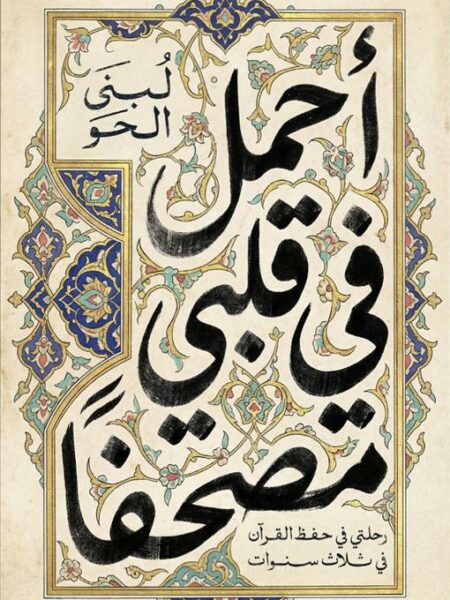 لُبنَى
الحَو
أحمل
في قلبي
مصحفاً
رحلتي في حفظ القرآن
في ثلاث سنوات